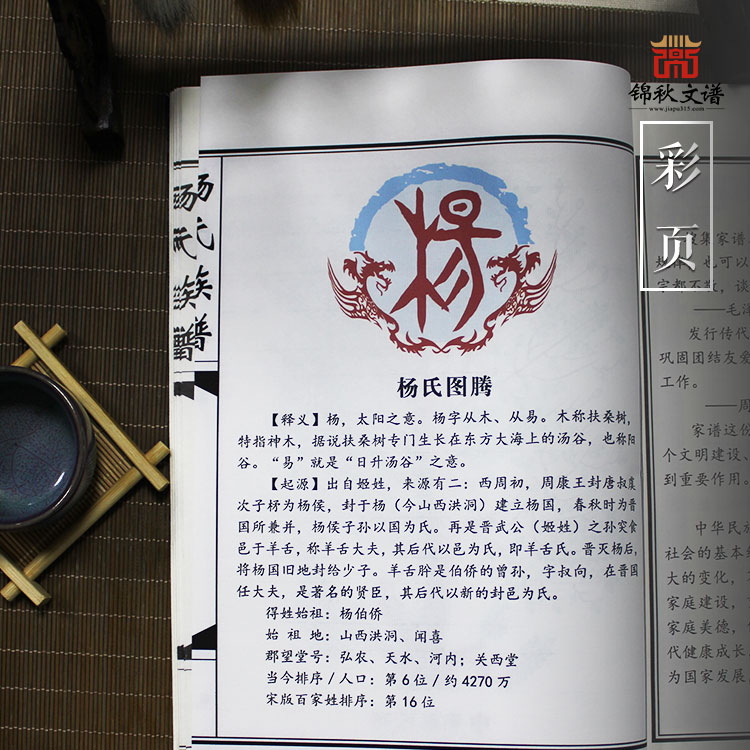 锦秋文谱
www.jiapu315.com
彩页
杨氏族谱
杨
杨氏图腾
【释义】杨，太阳之意。杨字从木、从易。木称扶桑树，
特指神木，据说扶桑树专门生长在东方大海上的汤谷，也称阳
谷。“易”就是“日升汤谷”之意。
【起源】出自姬姓，来源有二：西周初，周康王封唐叔虞
次子杼为杨侯，封于杨（今山西洪洞）建立杨国，春秋时为晋
国所兼并，杨侯子孙以国为氏。再是晋武公（姬姓）之孙突食
邑于羊舌，称羊舌大夫，其后代以邑为氏，即羊舌氏。晋灭杨后，
将杨国旧地封给少子。羊舌肸是伯侨的曾孙，字叔向，在晋国
任大夫，是著名的贤臣，其后代以新的封邑为氏。
得姓始祖：杨伯侨
始 祖 地：山西洪洞、闻喜
郡望堂号：弘农、天水、河内；关西堂
当今排序/人口：第6位/约4270万
宋版百家姓排序：第16位
集家谱
也可以
字都不敢，谈
——毛泽
发行传代
巩固团结友爱
工作。
——周
家谱这份
个文明建设、
到重要作用。
中华民族
社会的基本
大的变化，
家庭建设，
家庭美德，
代健康成长
为国家发展